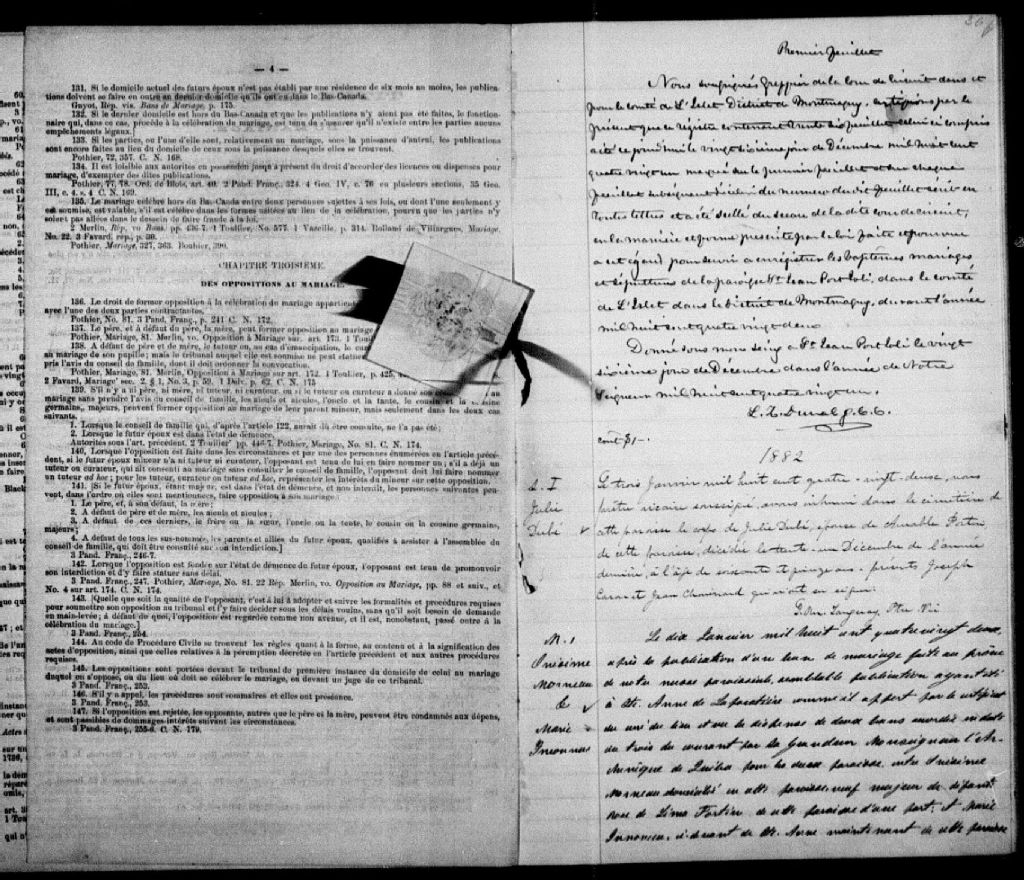 — 4 —
131. Si le domicile actuel des futurs époux n'est pas établi par une résidence de six mois au moins, les publica-
tions doivent se faire en outre au dernier domicile qu'ils ont eu dans le Bas-Canada.
Guyot, Rép. vis. Bans de Mariage, p. 175.
132. Si le dernier domicile est hors du Bas-Canada et que les publications n'y aient pas été faites, le fonction-
naire qui, dans ce cas, procède à la célébration du mariage, est tenu de s'assurer qu'il n'existe entre les parties aucuns
empêchements légaux.]
133. Si les parties, ou l'une d'elles, sont, relativement au mariage, sous la puissance d'autrui, les publications
sont encore faites au lieu du domicile de ceux sous la puissance desquels elles se trouvent.
Pothier, 72, 357. C. N. 168.
134. Il est loisible aux autorités en possession jusqu'à présent du droit d'accorder des licences ou dispenses pour
mariage, d'exempter des dites publications.
Pothier, 77, 78. Ord. de Blois, art. 40. 2 Pand. Franç., 324. 4 Geo. IV, c. 76 en plusieurs sections, 35 Geo.
III, c. 4, s. 4 C. N. 169.
135. Le mariage célébré hors du Bas-Canada entre deux personnes sujettes à ses lois, ou dont l'une seulement y
est soumise, est valable, s'il est célébré dans les formes usitées au lieu de la célébration, pourvu que les parties n'y
soient pas allées dans le dessein de faire fraude à la loi.
2 Merlin, Rép, vo Bans, pp. 436-7. 1 Toullier, No. 577. 1 Vazeille, p. 314. Rolland de Villargues, Mariage,
No. 22. 3 Favard, rép., p. 36.
Pothier, Mariage, 327, 363. Bouhier, 390.
CHAPITRE TROISIÈME.
DES OPPOSITIONS AU MARIAGE.
136. Le droit de former opposition à la célébration du mariage appartient
avec l'une des deux parties contractantes.
Pothier, No. 81. 3 Pand. Franç., p. 241 C. N. 172.
137. Le père, et à défaut du père, la mère, peut former opposition au mariage
Pothier, Mariage, 81. Merlin, vo. Opposition à Mariage sur. art. 173. 1 Toul
138. A défaut de père et de mère, le tuteur ou, au cas d'émancipation, le cura
au mariage de son pupille; mais le tribunal auquel elle est soumise ne peut statuer
pris l'avis du conseil de famille, dont il doit ordonner la convocation.
Pothier, Mariage, 81. Merlin, Opposition à Mariage sur art. 172. 1 Toullier, p. 425,
2 Favard, Mariage' sec. 2, § 1, No. 3, p. 59. 1 Delv. p. 62. C. N. 175
139. S'il n'y a ni père, ni mère, ni tuteur, ni curateur, ou si le tuteur ou curateur a donné son
mariage sans prendre l'avis du conseil de famille, les aïeuls et aïeules, l'oncle et la tante, le cousin et la cousine
germains, majeurs, peuvent former opposition au mariage de leur parent mineur, mais seulement dans les deux cas
suivants.
1. Lorsque le conseil de famille qui, d'après l'article 122, aurait dû être consulté, ne l'a pas été;
2. Lorsque le futur époux est dans l'état de démence.
Autorités sous l'art. précédent. 2 Toullier' pp. 446-7. Pothier, Mariage, No. 81. C. N. 174.
140. Lorsque l'opposition est faite dans les circonstances et par une des personnes énumérées en l'article précé-
dent, si le futur époux mineur n'a ni tuteur ni curateur, l'opposant est tenu de lui en faire nommer un; s'il a déjà un
tuteur ou curateur, qui ait consenti au mariage sans consulter le conseil de famille, l'opposant doit lui faire nommer
un tuteur ad hoc; pour les tuteur, curateur ou tuteur ad hoc, représenter les intérêts du mineur sur cette opposition.
141. Si le futur époux, étant majeur, est dans l'état de démence, et non interdit, les personnes suivantes peu-
vent, dans l'ordre où elles sont mentionnées, faire opposition à son mariage:
1. Le père, et, à son défaut, la mère;
2. A défaut de père et de mère, les aïeuls et aïeules;
3. A défaut de ces derniers, le frère ou la sœur, l'oncle ou la tante, le cousin ou la cousine germains,
majeurs;
4. A défaut de tous les sus-nommés, les parents et alliés du futur époux, qualifiés à assister à l'assemblée du
conseil de famille, qui doit être consulté sur son interdiction.]
3 Pand. Franç., 246-7.
142. Lorsque l'opposition est fondée sur l'état de démence du futur époux, l'opposant est tenu de promouvoir
son interdiction et d'y faire statuer sans délai.
3 Pand. Franç., 247. Pothier, Mariage, No. 81. 22 Rép. Merlin, vo. Opposition au Mariage, pp. 88 et suiv., et
No. 4 sur art. 174. C. N. 174.
143. [Quelle que soit la qualité de l'opposant, c'est à lui à adopter et suivre les formalités et procédures requises
pour soumettre son opposition au tribunal et l'y faire décider sous les délais voulus, sans qu'il soit besoin de demande
en main-levée; à défaut de quoi, l'opposition est regardée comme non avenue, et il est, nonobstant, passé outre à la
célébration du mariage.]
3 Pand. Franç., 254.
144. Au code de Procédure Civile se trouvent les règles quant à la forme, au contenu et à la signification des
actes d'opposition, ainsi que celles relatives à la péremption décrétée en l'article précédent et aux autres procédures
requises.
145. Les oppositions sont portées devant le tribunal de première instance du domicile de celui au mariage
duquel on s'oppose, ou du lieu où doit se célébrer le mariage, ou devant un juge de ce tribunal.
3 Pand. Franç., 253.
146. S'il y a appel, les procédures sont sommaires et elles ont préséance.
3 Pand. Franç., 253.
147. Si l'opposition est rejetée, les opposants, autres que le père et la mère, peuvent être condamnés aux dépens,
et sont passibles de dommages-intérêts suivant les circonstances.
3 Pand. Franç., 255-6. C. N. 179.
Premier feuillet
Nous soussignés greffier de la Cour de circuit dans et
pour le comté de L'Islet District de Montmagny, certifions par le
présent que ce registre contenant trente six feuillets celui ci compris
a été ce jour d'hui le vingt sixième jour de Décembre mil huit cent
quatre vingt un marqué sur le premier feuillet et sur chaque
feuillet subséquent du numéro du dit feuillet écrit en
toutes lettres et a été scellé du sceau de la dite cour de circuit,
en la manière et forme prescrite par la loi faite et pourvue
a cet égard pour servir a enrégistrer les baptêmes mariages
et sépultures de la paroisse St. Jean Port Joli, dans le comté
de L'Islet dans le District de Montmagny, durant l'année
mil huit cent quatre vingt deux
Donné sous mon seing a St. Jean Port Joli le vingt
sixième jour de Décembre dans l'année de Notre
Seigneur mil huit cent quatre vingt un.
L. Z. Duval g. C. C.
cout $1-.
1882
S. I
Julie
Dubé
Le trois Janvier mil huit cent quatre-vingt-deux, nous
prêtre vicaire soussigné, avons inhumé dans le cimetière de
cette paroisse le corps de Julie Dubé, épouse de Amable Fortin,
de cette paroisse, décédée le trente-un Décembre de l'année
dernière, à l'âge de soixante et quinze ans. présents Joseph
Caron et Jean Chouinard qui n'ont su signer.
Ptre Vic
M. 1
Onésime
Morneau
&
Marie
Inconnue
Le dix Janvier mil huit cent quatre vingt deux,
après la publication d'un ban de mariage faite au prône
de notre messe paroissiale, semblable publication ayant été
à Ste. Anne de Lapocatière comme il appert par le certificat
du curé du lieu et vu la dispense de deux bans accordée en date
du trois du courant par Sa Grandeur Monseigneur l'Ar-
chevêque de Québec pour les deux paroisses, entre Onésime
Morneau domicilié en cette paroisse, veuf majeur de défunte
Rose de Lima Fortin de cette paroisse d'une part; et Marie
Inconnue, ci-devant de Ste. Anne maintenant de cette paroisse